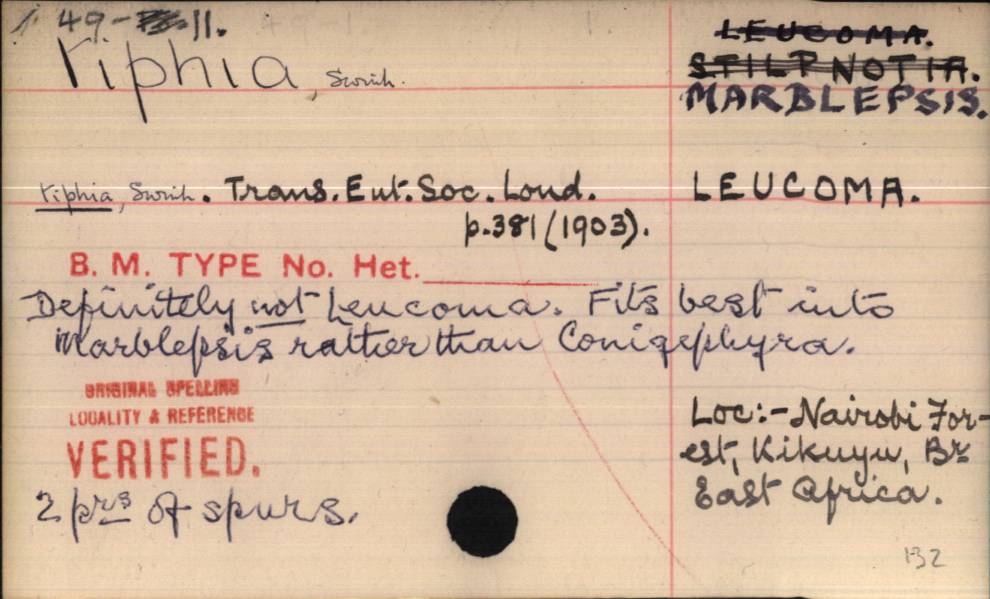 49-11.
LEUCOMA.
STILPNOTIA.
MARBLEPSIS.
tiphia, Swinh.
tiphia, Swinh. Trans. Ent. Soc. Lond.
p.381 (1903).
LEUCOMA.
B. M. TYPE No. Het.
Definitely not Leucoma. Fits best into
Marblepsis rather than Conigephyra.
ORIGINAL SPELLING
LOCALITY & REFERENCE
VERIFIED.
Loc:- Nairobi For-
est, Kikuyu, Br.
East Africa.
2 prs of spurs.
132